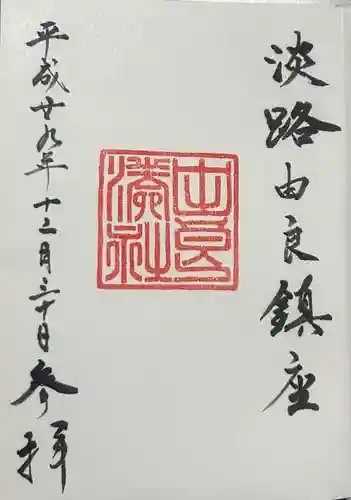 淡路由良鎮座
由良湊社
平成廿九年十二月三十日参拝